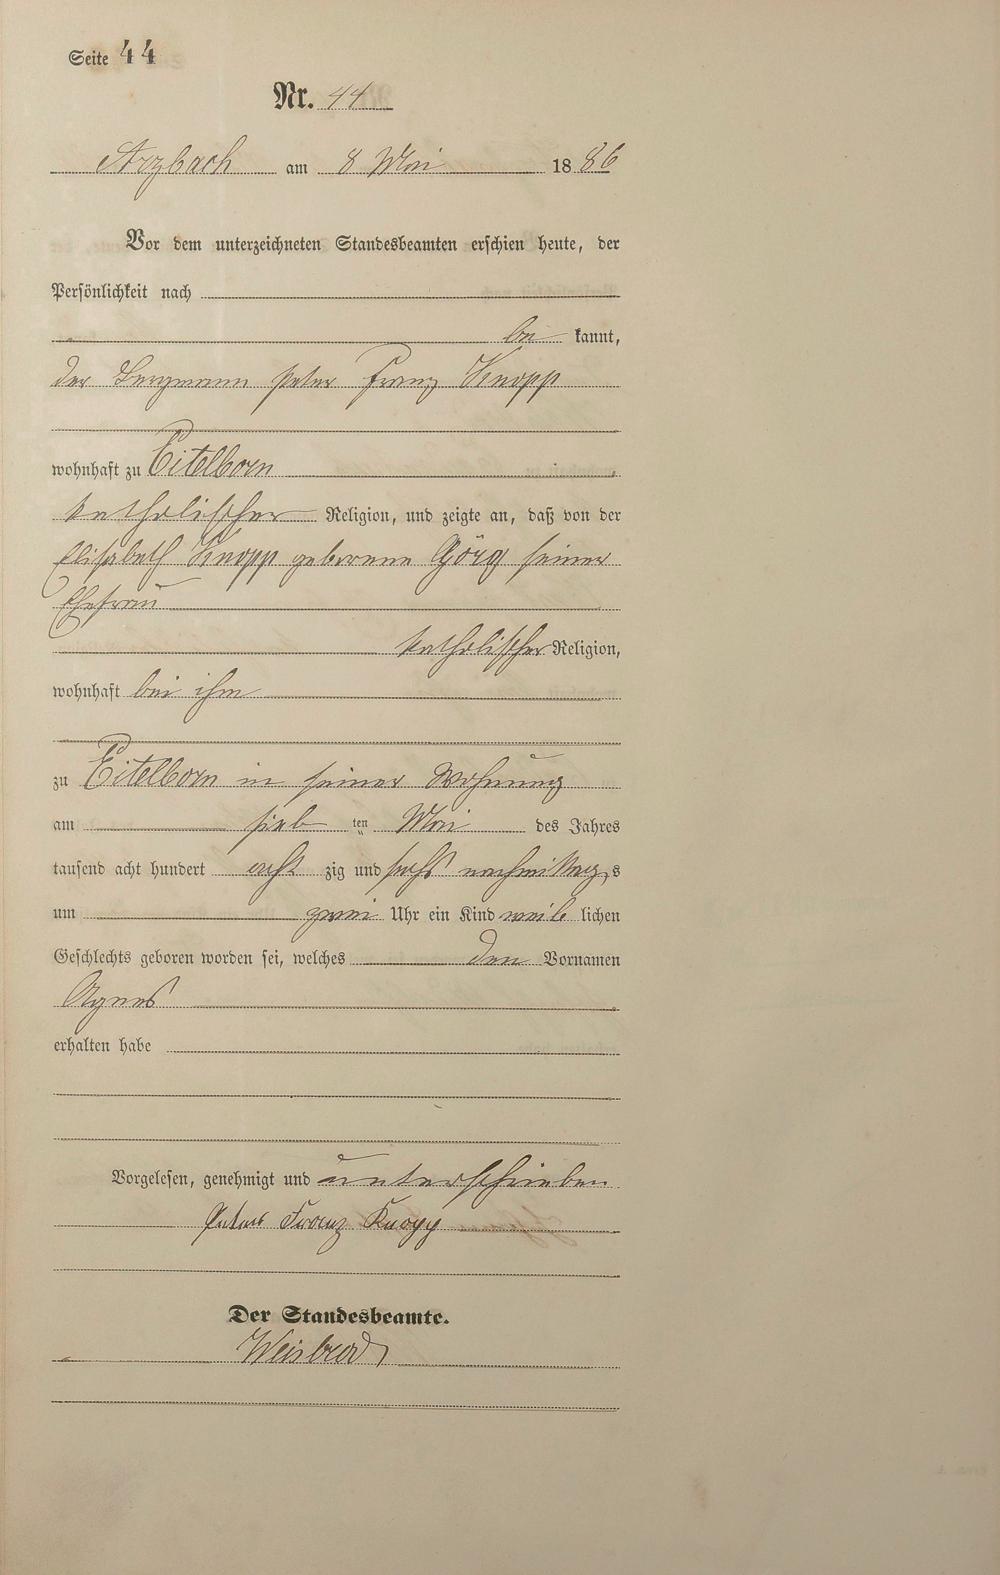 Seite 44
Nr. 44
Arzbach am 8 Mai 1886
Vor dem unterzeichneten Standesbeamten erschien heute, der
Persönlichkeit nach
be kannt,
der Bergmann Peter Franz Knopp
wohnhaft zu Eitelborn
katholischer Religion, und zeigte an, daß von der
Elisabeth Knopp geborene Görg seiner
Ehefrau
katholischer Religion,
wohnhaft bei ihm
zu Eitelborn in seiner Wohnung
am sieb ten Mai des Jahres
tausend acht hundert acht zig und sechs nachmittags
um zwei Uhr ein Kind weib lichen
Geschlechts geboren worden sei, welches den Vornamen
Agnes
erhalten habe
Vorgelesen, genehmigt und unterschrieben
Peter Franz Knopp
Der Standesbeamte.
Weisbrod